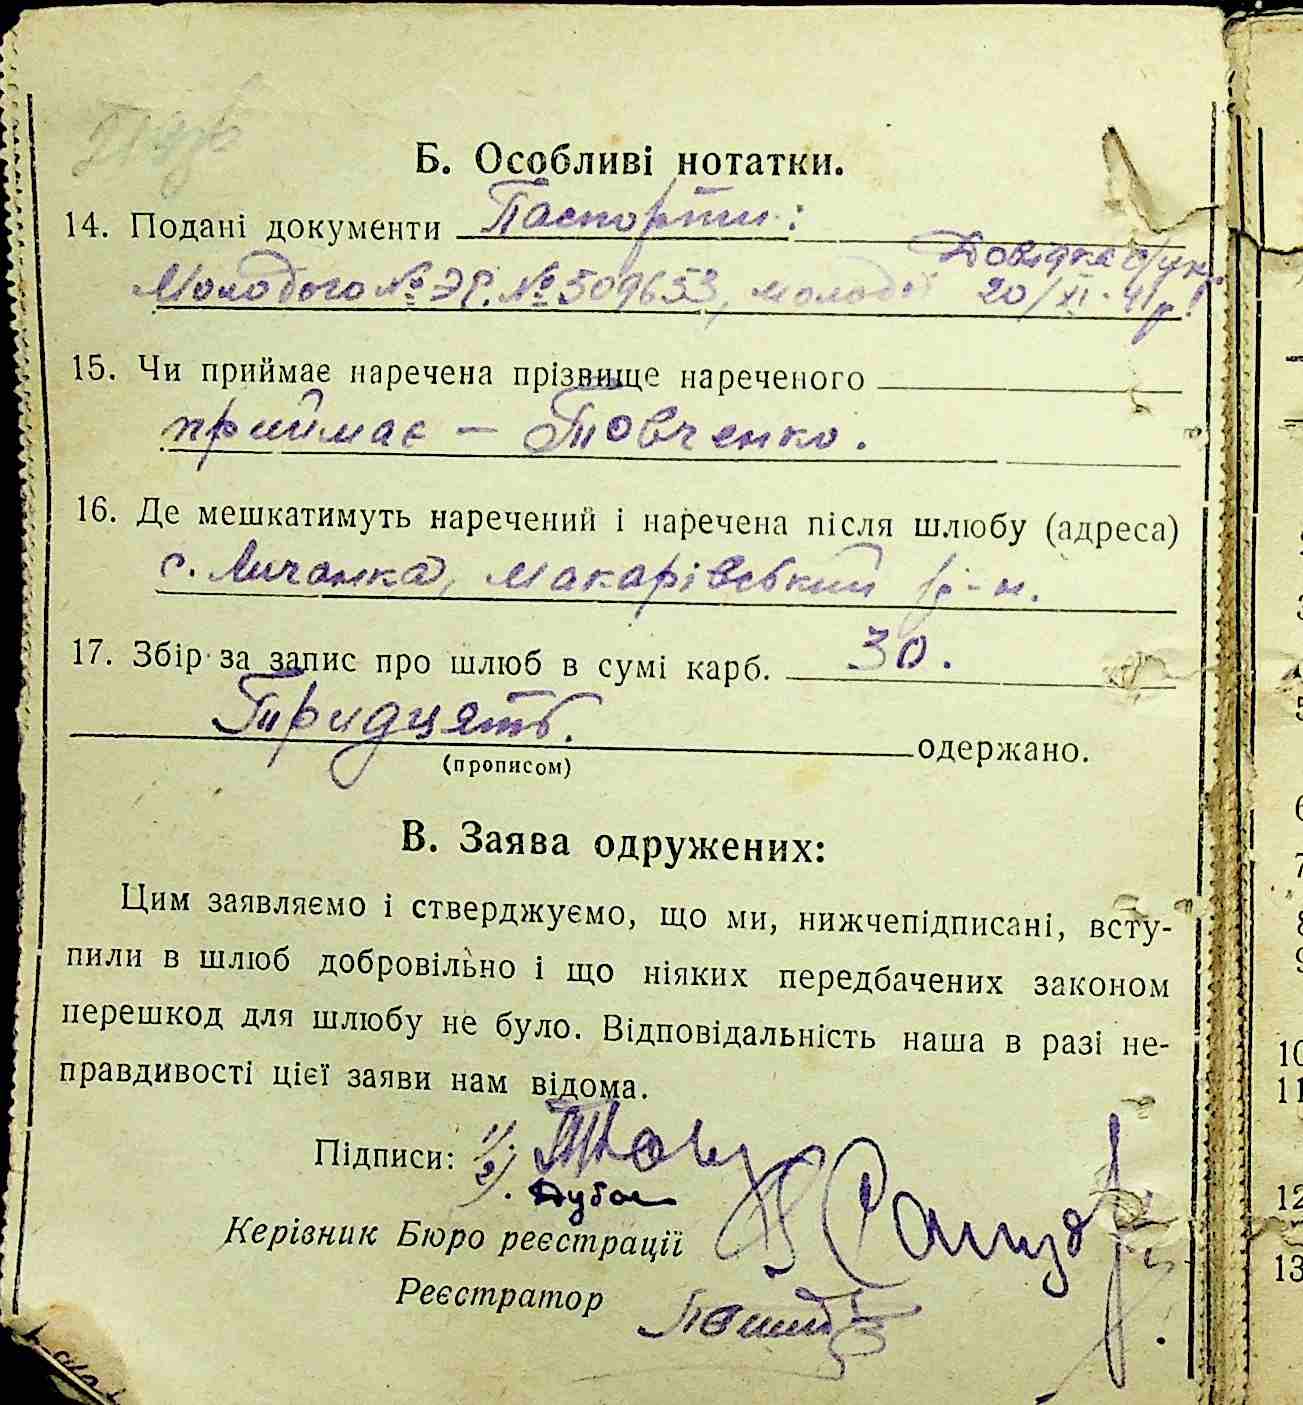 Б. Особливі нотатки.
14. Подані документи Паспорти:
Молодого № ЭР. № 509653, молодої Довідка
20/XI-41р.
15. Чи приймає наречена прізвище нареченого
приймає – Товченко.
16. Де мешкатимуть наречений і наречена після шлюбу (адреса)
с. Личанка, Макарівський р-н.
17. Збір за запис про шлюб в сумі карб. 30.
Тридцять. одержано.
(прописом)
В. Заява одружених:
Цим заявляємо і стверджуємо, що ми, нижчепідписані, всту-
пили в шлюб добровільно і що ніяких передбачених законом
перешкод для шлюбу не було. Відповідальність наша в разі не-
правдивості цієї заяви нам відома.
Підписи: 1)
2).
Керівник Бюро реєстрації
Реєстратор
6
7
8
9
10
11
12
13